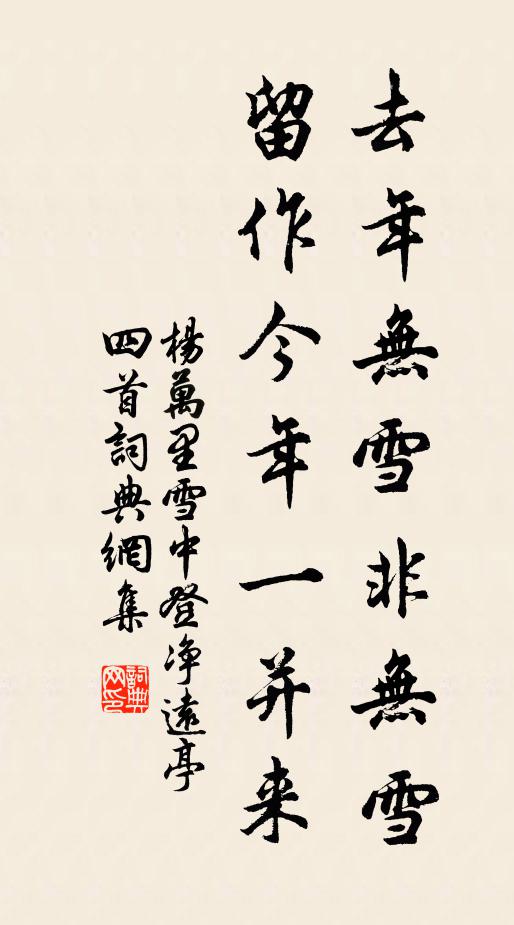 去年無雪非無雪
留作今年一并来
楊萬里雪中登净遠亭
四首詞典網集
詞典网印